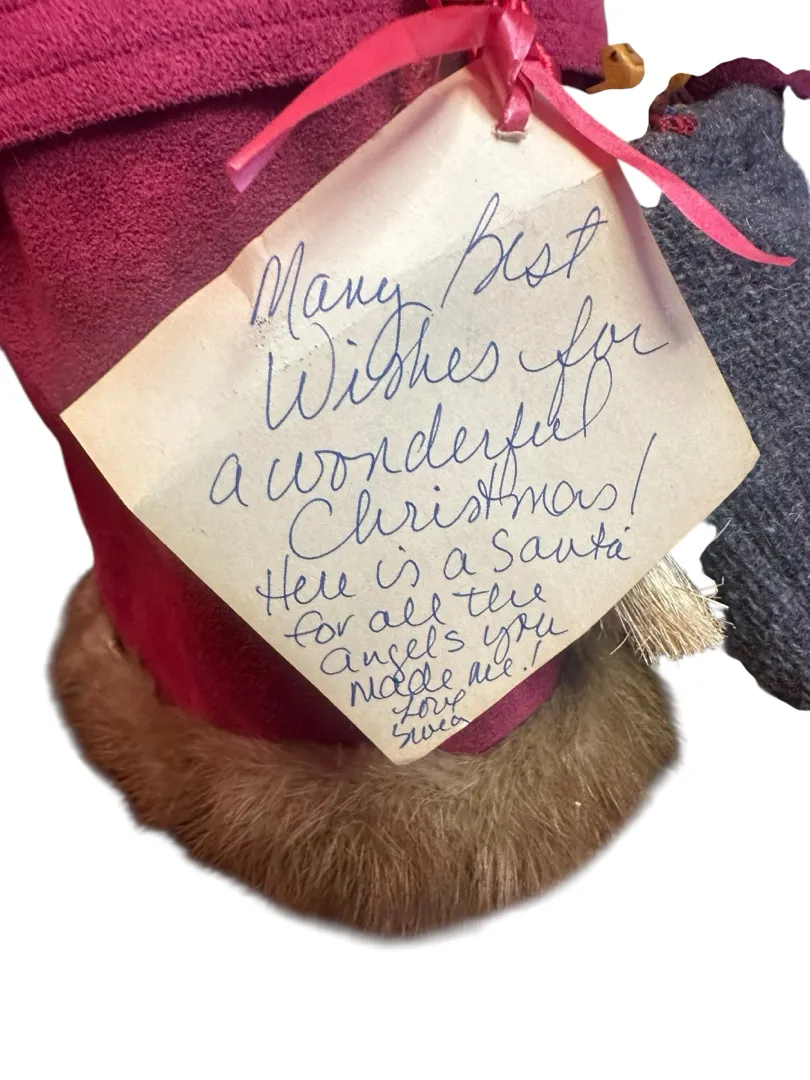 Many Best
Wishes for
a wonderful
Christmas!
Here is a Santa
for all the
angels you
made me!
Love